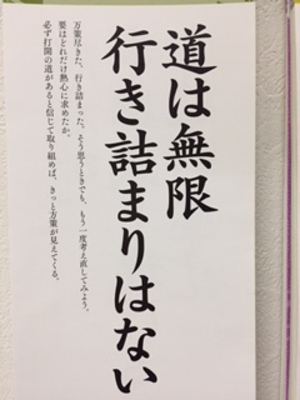 道は無限
行き詰まりはない
万策尽きた、行き詰まった。そう思うときでも、もう一度考え直してみよう。
要はどれだけ熱心に求めたか。
必ず打開の道があると信じて取り組めば、きっと方策が見えてくる。